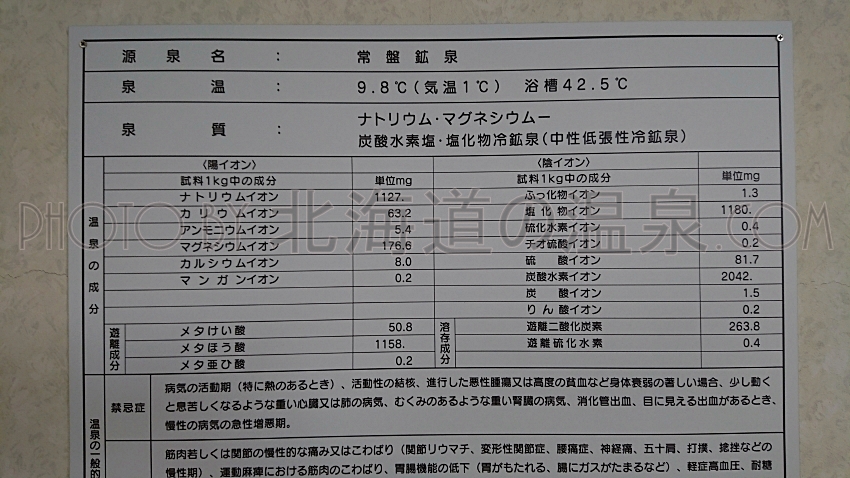 源泉名 : 常盤鉱泉
泉温 : 9.8℃(気温1℃) 浴槽42.5℃
泉質 : ナトリウム・マグネシウムー
炭酸水素塩・塩化物冷鉱泉(中性低張性冷鉱泉)
温泉の成分
〈陽イオン〉
試料1kg中の成分 単位mg
ナトリウムイオン 1127.
カリウムイオン 63.2
アンモニウムイオン 5.4
マグネシウムイオン 176.6
カルシウムイオン 8.0
マンガンイオン 0.2
〈陰イオン〉
試料1kg中の成分 単位mg
ふっ化物イオン 1.3
塩化物イオン 1180.
硫化水素イオン 0.4
チオ硫酸イオン 0.2
硫酸イオン 81.7
炭酸水素イオン 2042.
炭酸イオン 1.5
りん酸イオン 0.2
遊離成分
メタけい酸 50.8
メタほう酸 1158.
メタ亜ひ酸 0.2
溶存成分
遊離二酸化炭素 263.8
遊離硫化水素 0.4
温泉の一般的
禁忌症
病気の活動期(特に熱のあるとき)、活動性の結核、進行した悪性腫瘍又は高度の貧血など身体衰弱の著しい場合、少し動く
と息苦しくなるような重い心臓又は肺の病気、むくみのあるような重い腎臓の病気、消化管出血、目に見える出血があるとき、
慢性の病気の急性増悪期。
筋肉若しくは関節の慢性的な痛み又はこわばり(関節リウマチ、変形性関節症、腰痛症、神経痛、五十肩、打撲、捻挫などの
慢性期)、運動麻痺における筋肉のこわばり、胃腸機能の低下(胃がもたれる、腸にガスがたまるなど)、軽症高血圧、耐糖
PHOTO BY 北海道の温泉.COM